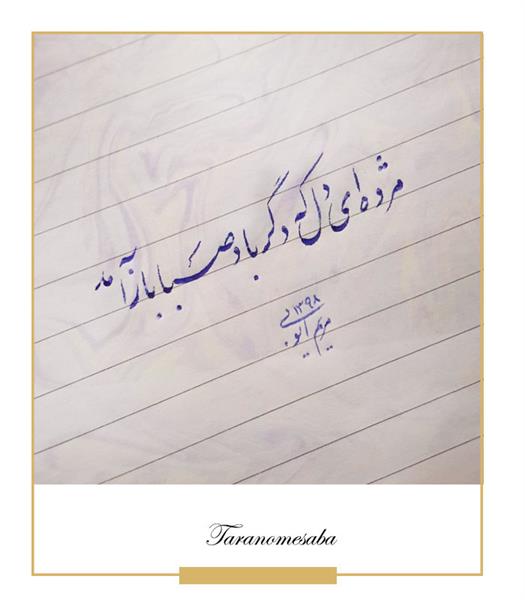 مژده ای دل که دگر باد صبا باز آمد
۱۳۹۸
مریم ایوبی
Taranomesaba